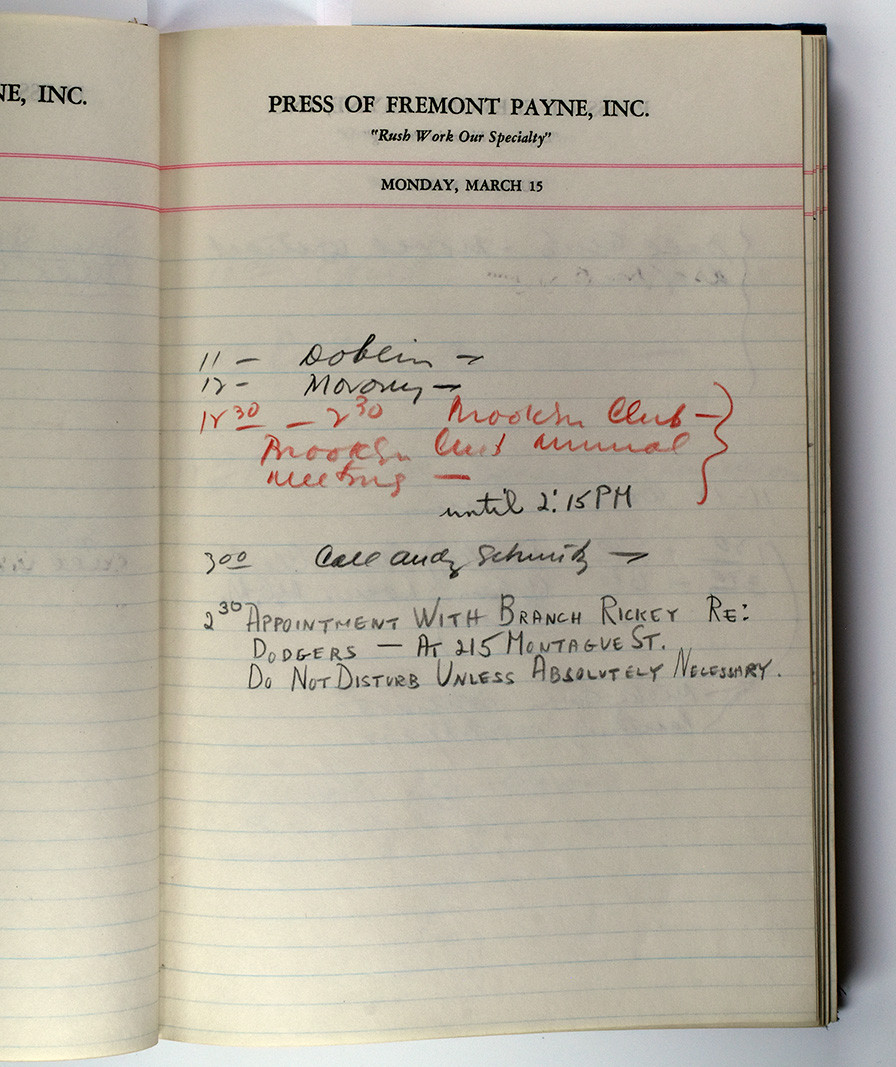 NE, INC.
PRESS OF FREMONT PAYNE, INC.
"Rush Work Our Specialty"
MONDAY, MARCH 15
11 — Doblin —
12 — Morony —
12 30 — 2 30 Brooklyn Club —
Brooklyn Club annual
meeting —
until 2:15 PM
3 00 Call Andy Schmitz —
2 30 APPOINTMENT WITH BRANCH RICKEY RE:
DODGERS — AT 215 MONTAGUE ST.
DO NOT DISTURB UNLESS ABSOLUTELY NECESSARY.